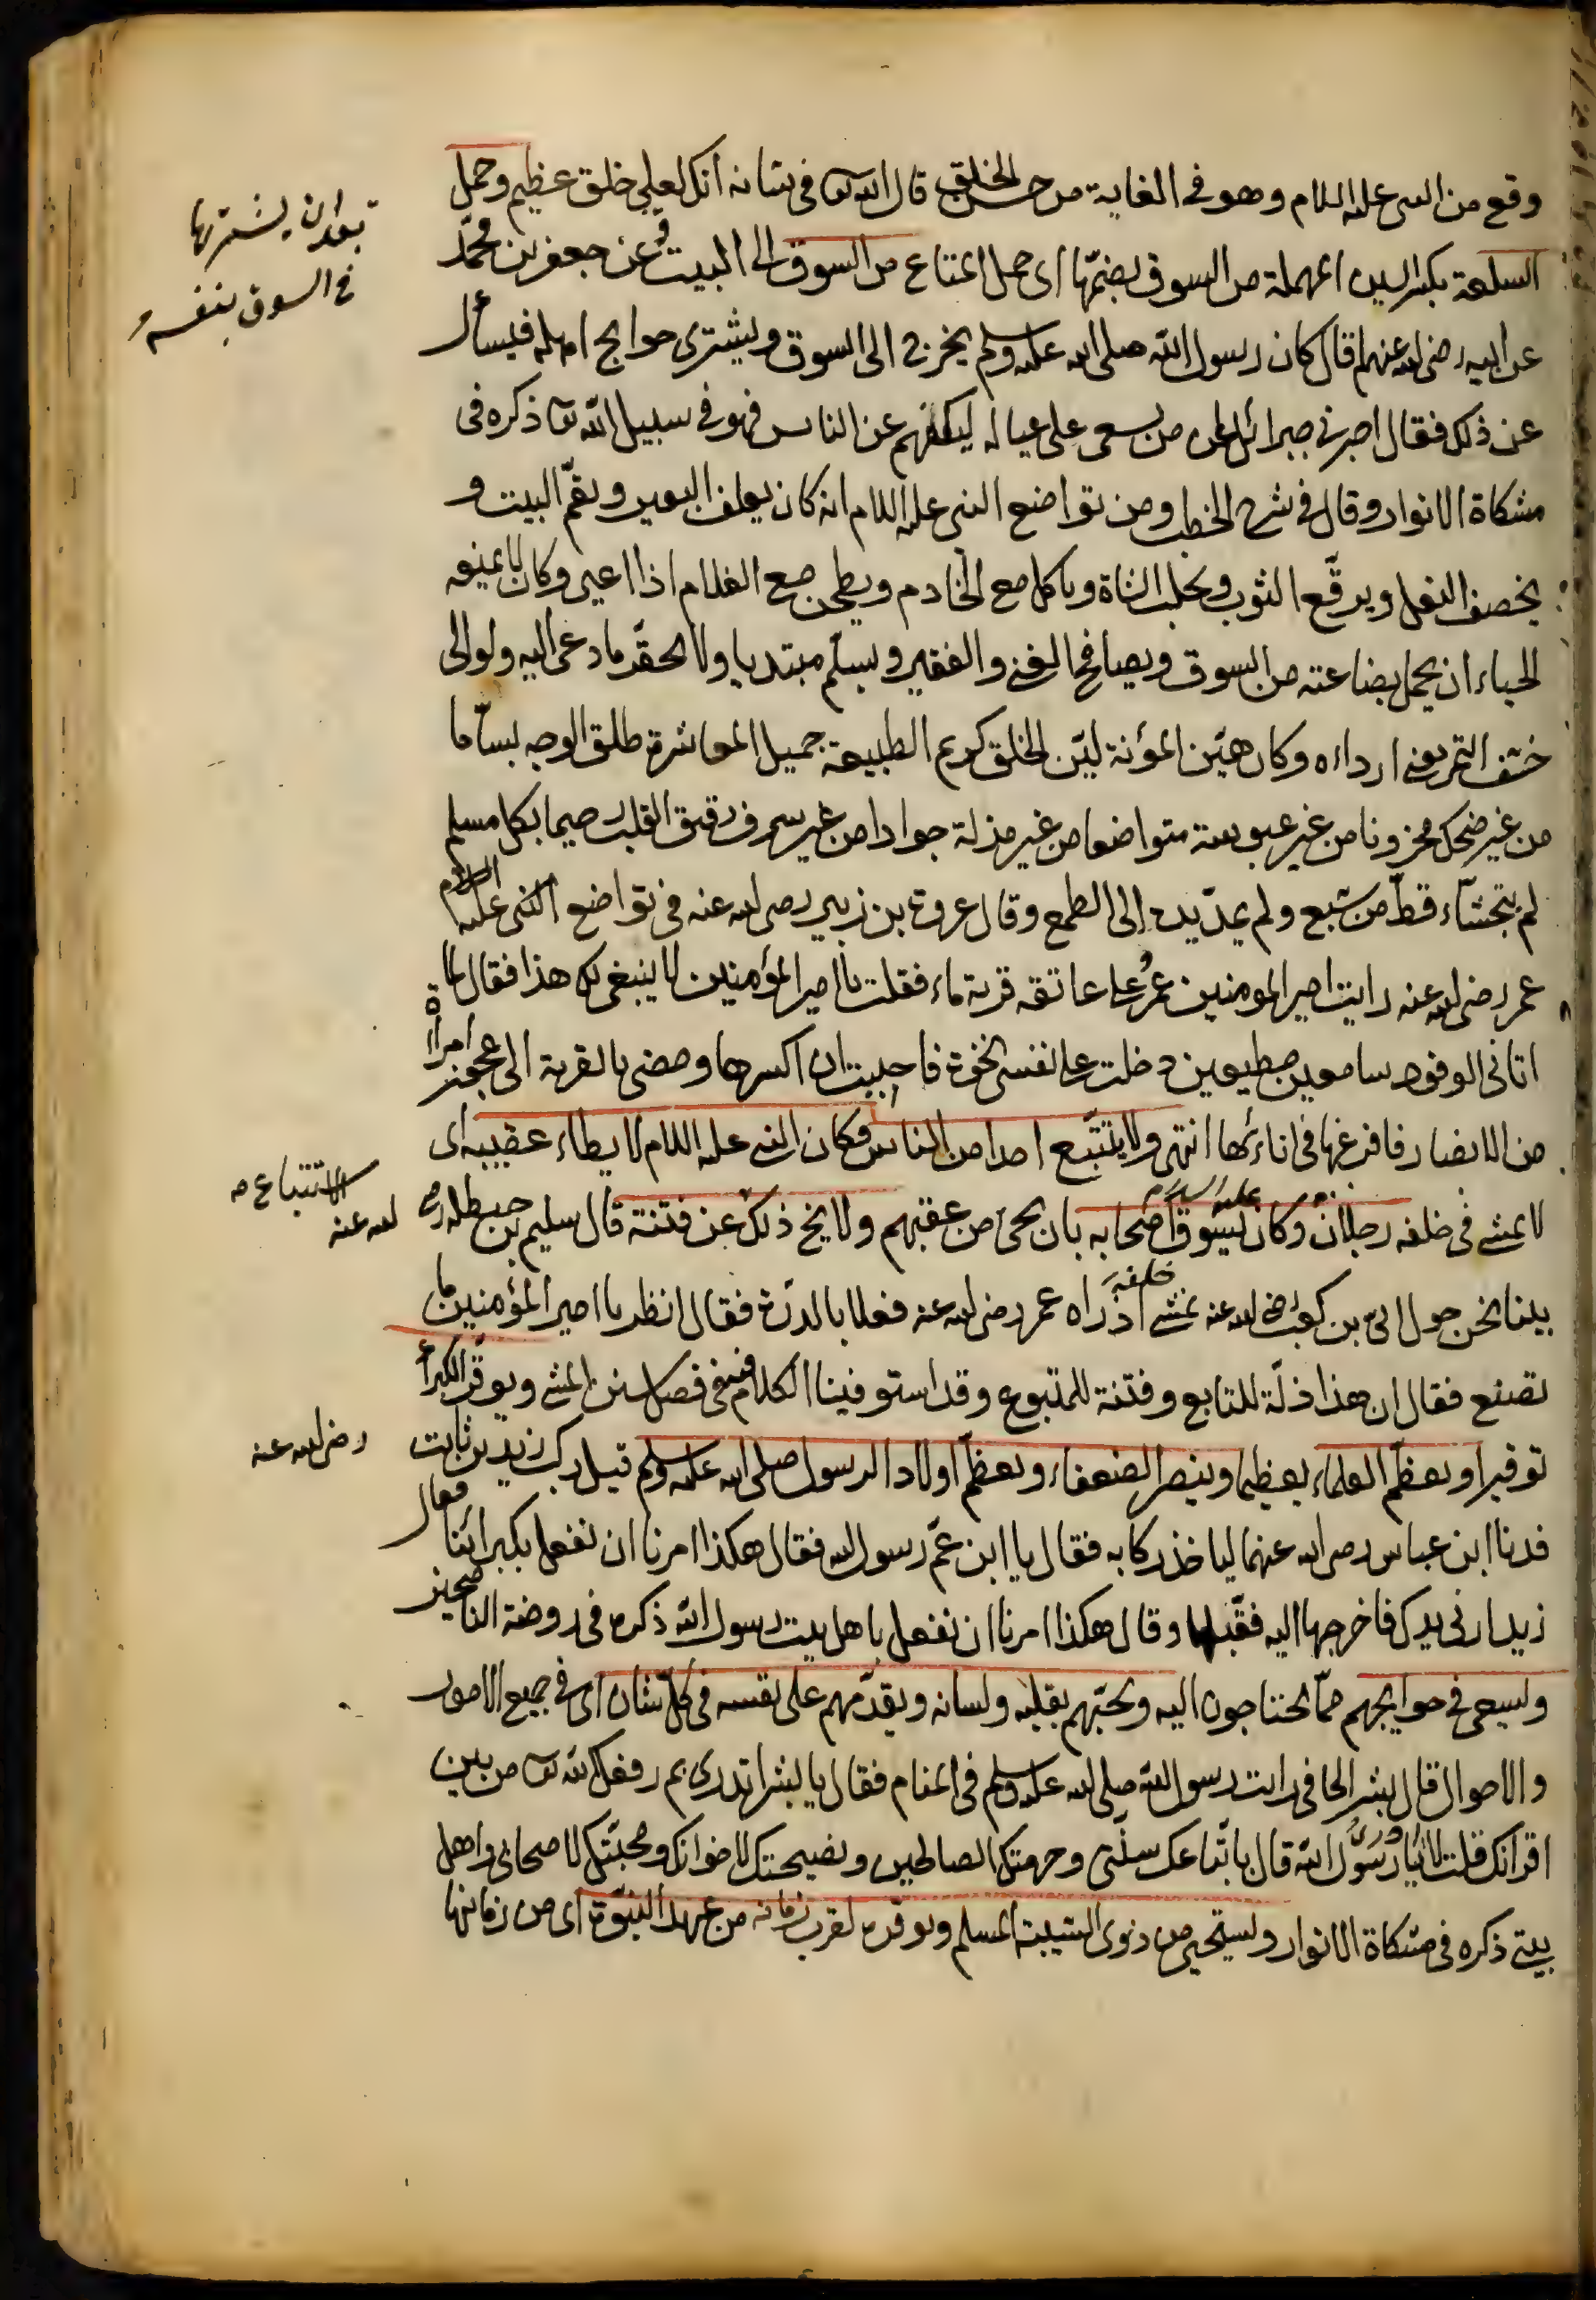 وقع من النبي عليه السلام وهو في الغاية من حسن الخلق قال الله تع في شانه انك لعلى خلق عظيم وحمل
السلعة بكسر السين المهملة من السوق بضمّها اى حمل المتاع من السوق الى البيت وعن جعفر بن محمّد
بعد ان يشتريها
في السوق بنفسه
عن ابيه رضى الله عنهم قال كان رسول الله صلى الله عليه وسلم يخرج الى السوق ويشترى حوايج اهله فيسأل
عن ذلك فقال اخبرنى جبرائيل ان من سعى على عياله ليكفهم عن الناس فهو في سبيل الله تع ذكره في
مشكاة الانوار وقال في شرح الخطب ومن تواضع النبي عليه السلام انه كان يعلف البعير ويقمّ البيت و
يخصف النعل ويرقّع الثوب ويحلب الشاة وياكل مع الخادم ويطحن مع الغلام اذا اعيى وكان لا يمنعه
الحياء ان يحمل بضاعته من السوق ويصافح الغنى والفقير ويسلّم مبتديا ولا يحقّر ما دعى اليه ولو الى
حشف التمر يعنى ارداءه وكان هيّن المؤنة ليّن الخلق كريم الطبيعة جميل المعاشرة طلق الوجه بسّاما
من غير ضحك محزونا من غير عبوسة متواضعا من غير مذلة جوادا من غير سرف رقيق القلب رحيما بكل مسلم
لم يتجشّاء قطّ من شبع ولم يمدّ يده الى الطمع وقال عروة بن زبير رضى الله عنه في تواضع النبي عليه السلام
عمر رضى الله عنه رايت امير المومنين عمر على عاتقه قربة ماء فقلت يا امير المؤمنين لا ينبغى لك هذا فقال لما
اتانى الوفود سامعين مطيعين دخلت على نفسى نخوة فاحببت ان اكسرها ومضى بالقربة الى عجوز امرأة
من الانصار فافرغها في انائها انتهى ولا يتتبّع احدا من الناس وكان النبي عليه السلام لا يطاء عقبيه اى
الاتباع
لا يمشى في خلفه رجلان وكان عليه السلام يسوق اصحابه بان يجئ من عقبهم ولا يخ ذلك عن فتنة قال سليم بن حنظلة رضى
الله عنه
بينا نحن حول ابىّ بن كعب رضى الله عنه نمشى خلفه اذ راه عمر رضى الله عنه فعلا بالدرّة فقال انظر يا امير المؤمنين ما
تصنع فقال ان هذا ذلّة للتابع وفتنة للمتبوع وقد استوفينا الكلام في فصل سنن المشى ويوقّر الكبراء
توقيرا ويعظّم العلماء تعظيما وينصر الضعفاء ويعظّم اولاد الرسول صلى الله عليه وسلم قيل ركب زيد بن ثابت
رضى الله عنه
فدنا ابن عباس رضى الله عنهما لياخذ ركابه فقال يا ابن عمّ رسول الله فقال هكذا امرنا ان نفعل بكبرائنا فقال
زيد ارنى يدك فاخرجها اليه فقبّلها وقال هكذا امرنا ان نفعل باهل بيت رسول الله ذكره في روضة الناصحين
ويسعى في حوايجهم ممّا يحتاجون اليه ويحبّهم بقلبه ولسانه ويقدّمهم على نفسه في كلّ شان اى في جميع الامور
والاحوال قال بشر الحافى رايت رسول الله صلى الله عليه وسلم في المنام فقال يا بشر اتدرى بم رفعك الله تع من بين
اقرانك قلت لا يا رسول الله قال باتّباعك سنّتى وحرمتك الصالحين ونصيحتك لاخوانك ومحبّتك لاصحابى واهل
بيتى ذكره في مشكاة الانوار ويستحيى من ذوى الشيبة المسلم ويوقره لقرب زمانه من عهد النبوّة اى من زمانها